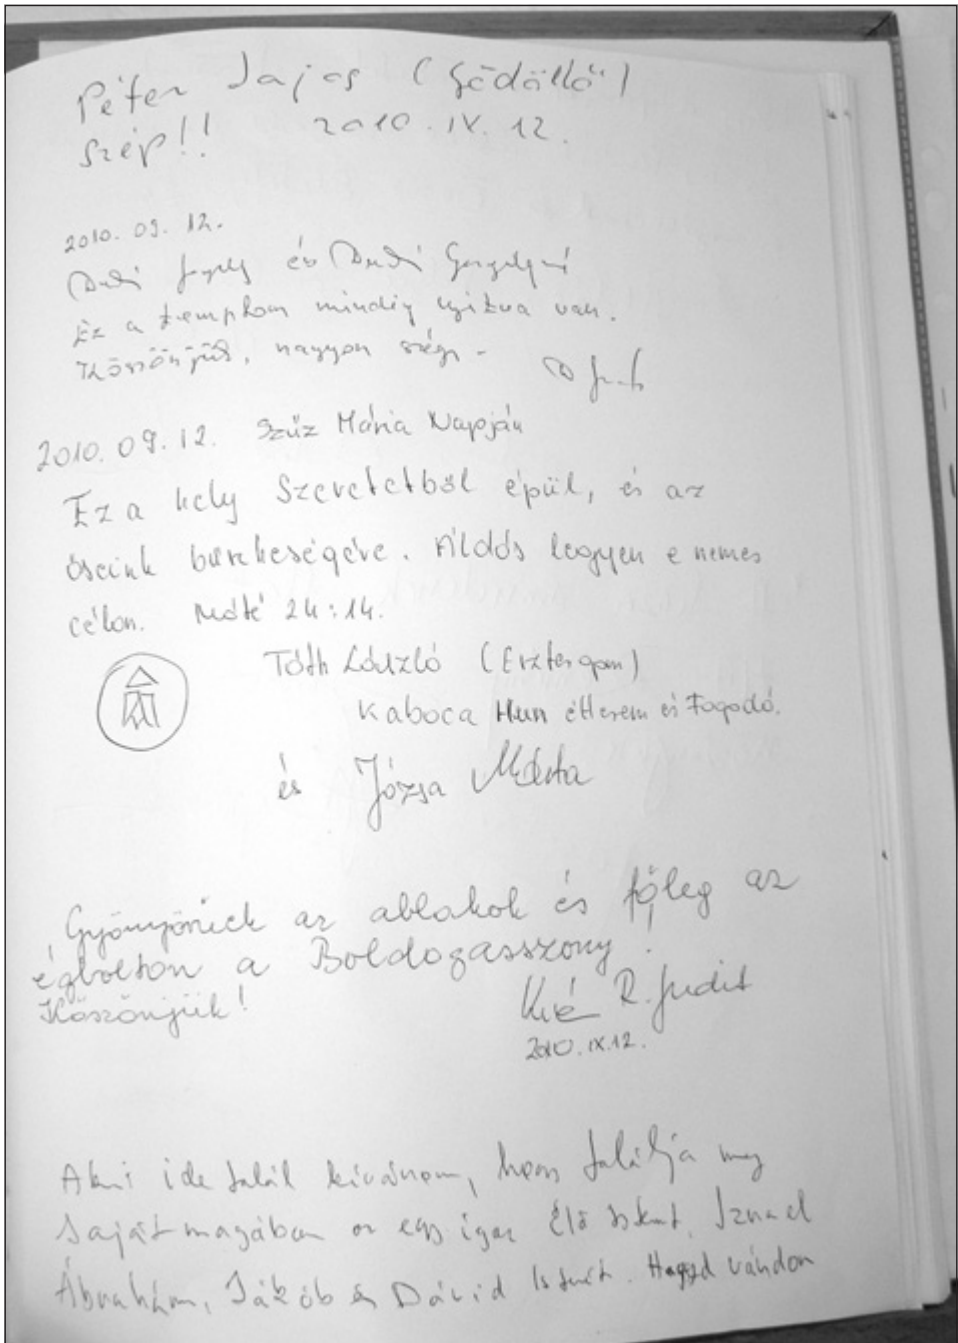 Péter Lajos (Gödöllő)
Szép!! 2010. IX. 12.
2010. 09. 12.
és
Ez a templom mindig nyitva van.
Köszönjük, nagyon szép.
2010. 09. 12. Szűz Mária Napján
Ez a hely Szeretetből épül, és az
őseink büszkeségére. Áldás legyen e nemes
célon. Máté 24:14.
Tóth László (Esztergom)
Kaboca Hun étterem és Fogadó.
és Józsa Márta
Gyönyörűek az ablakok és főleg az
égbolton a Boldogasszony!
Köszönjük! R. Judit
2010. IX. 12.
Aki ide talál kívánom, hogy találja meg
saját magában az egy igaz Élő Istent, Izrael
Ábrahám, Jákób és Dávid Istenét. vándor